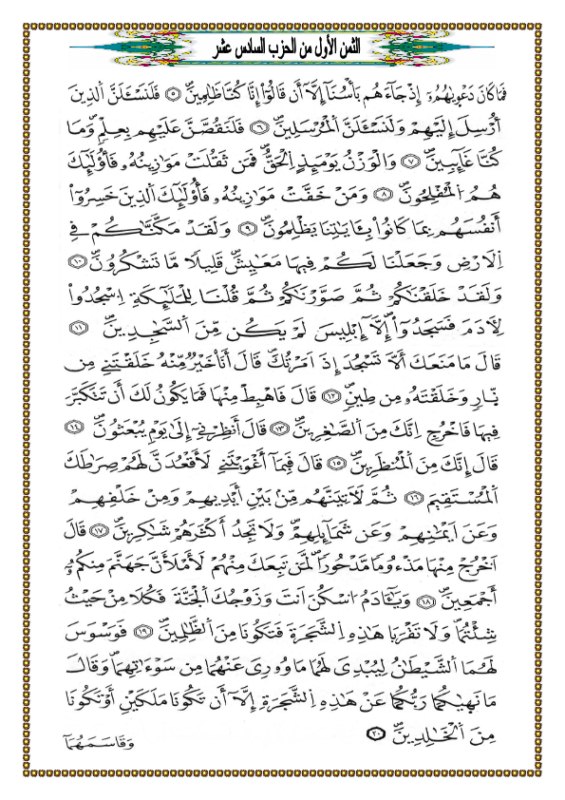 الثمن الأول من الحزب السادس عشر
فَمَا كَانَ دَعْوٜيٰهُمُۥٓ إِذْ جَآءَهُم بَأْسُنَآ إِلَّآ أَن قَالُوٓاْ إِنَّا كُنَّا ظَٰلِمِينَۖ ٥ فَلَنَسْـَٔلَنَّ اَ۬لذِينَ
أُرْسِلَ إِلَيْهِمْ وَلَنَسْـَٔلَنَّ اَ۬لْمُرْسَلِينَۖ ٦ فَلَنَقُصَّنَّ عَلَيْهِم بِعِلْمٖۖ وَمَا
كُنَّا غَآئِبِينَۖ ٧ وَالْوَزْنُ يَوْمَئِذٍ اِ۬لْحَقُّۖ فَمَن ثَقُلَتْ مَوَٰزِينُهُۥ فَأُوْلَٰٓئِكَ
هُمُ اُ۬لْمُفْلِحُونَۖ ٨ وَمَنْ خَفَّتْ مَوَٰزِينُهُۥ فَأُوْلَٰٓئِكَ اَ۬لذِينَ خَسِرُوٓاْ
أَنفُسَهُم بِمَا كَانُواْ بِـَٔايَٰتِنَا يَظْلِمُونَۖ ٩ وَلَقَدْ مَكَّنَّٰكُمْ فِے
اِ۬لَارْضِ وَجَعَلْنَا لَكُمْ فِيهَا مَعَٰيِشَۖ قَلِيلاٗ مَّا تَشْكُرُونَۖ ١٠
وَلَقَدْ خَلَقْنَٰكُمْ ثُمَّ صَوَّرْنَٰكُمْ ثُمَّ قُلْنَا لِلْمَلَٰٓئِكَةِ اِ۟سْجُدُواْ
لِأٓدَمَ فَسَجَدُوٓاْ إِلَّآ إِبْلِيسَ لَمْ يَكُن مِّنَ اَ۬لسَّٰجِدِينَۖ ١١
قَالَ مَا مَنَعَكَ أَلَّا تَسْجُدَ إِذَ اَمَرْتُكَۖ قَالَ أَنَا۠ خَيْرٞ مِّنْهُ خَلَقْتَنِے مِن
نّ۪ارٖ وَخَلَقْتَهُۥ مِن طِينٖۖ ١٢ قَالَ فَاهْبِطْ مِنْهَا فَمَا يَكُونُ لَكَ أَن تَتَكَبَّرَ
فِيهَا فَاخْرُجِ اِنَّكَ مِنَ اَ۬لصَّٰغِرِينَۖ ١٣ قَالَ أَنظِرْنِےٓ إِلَىٰ يَوْمِ يُبْعَثُونَۖ ١٤
قَالَ إِنَّكَ مِنَ اَ۬لْمُنظَرِينَۖ ١٥ قَالَ فَبِمَآ أَغْوَيْتَنِے لَأَقْعُدَنَّ لَهُمْ صِرَٰطَكَ
اَ۬لْمُسْتَقِيمَ ١٦ ثُمَّ لَأٓتِيَنَّهُم مِّنۢ بَيْنِ أَيْدِيهِمْ وَمِنْ خَلْفِهِمْ
وَعَنَ اَيْمَٰنِهِمْ وَعَن شَمَآئِلِهِمْۖ وَلَا تَجِدُ أَكْثَرَهُمْ شَٰكِرِينَۖ ١٧ قَالَ
اَ۟خْرُجْ مِنْهَا مَذْءُوماٗ مَّدْحُوراٗۖ لَّمَن تَبِعَكَ مِنْهُمْ لَأَمْلَأَنَّ جَهَنَّمَ مِنكُمُۥٓ
أَجْمَعِينَۖ ١٨ وَيَٰٓـَٔادَمُ اُ۟سْكُنَ اَنتَ وَزَوْجُكَ اَ۬لْجَنَّةَ فَكُلَا مِنْ حَيْثُ
شِئْتُمَاۖ وَلَا تَقْرَبَا هَٰذِهِ اِ۬لشَّجَرَةَ فَتَكُونَا مِنَ اَ۬لظَّٰلِمِينَۖ ١٩ فَوَسْوَسَ
لَهُمَا اَ۬لشَّيْطَٰنُ لِيُبْدِيَ لَهُمَا مَا وُۥرِيَ عَنْهُمَا مِن سَوْءَٰتِهِمَاۖ وَقَالَ
مَا نَهٜيٰكُمَا رَبُّكُمَا عَنْ هَٰذِهِ اِ۬لشَّجَرَةِ إِلَّآ أَن تَكُونَا مَلَكَيْنِ أَوْ تَكُونَا
مِنَ اَ۬لْخَٰلِدِينَۖ ٢٠
وَقَاسَمَهُمَآ